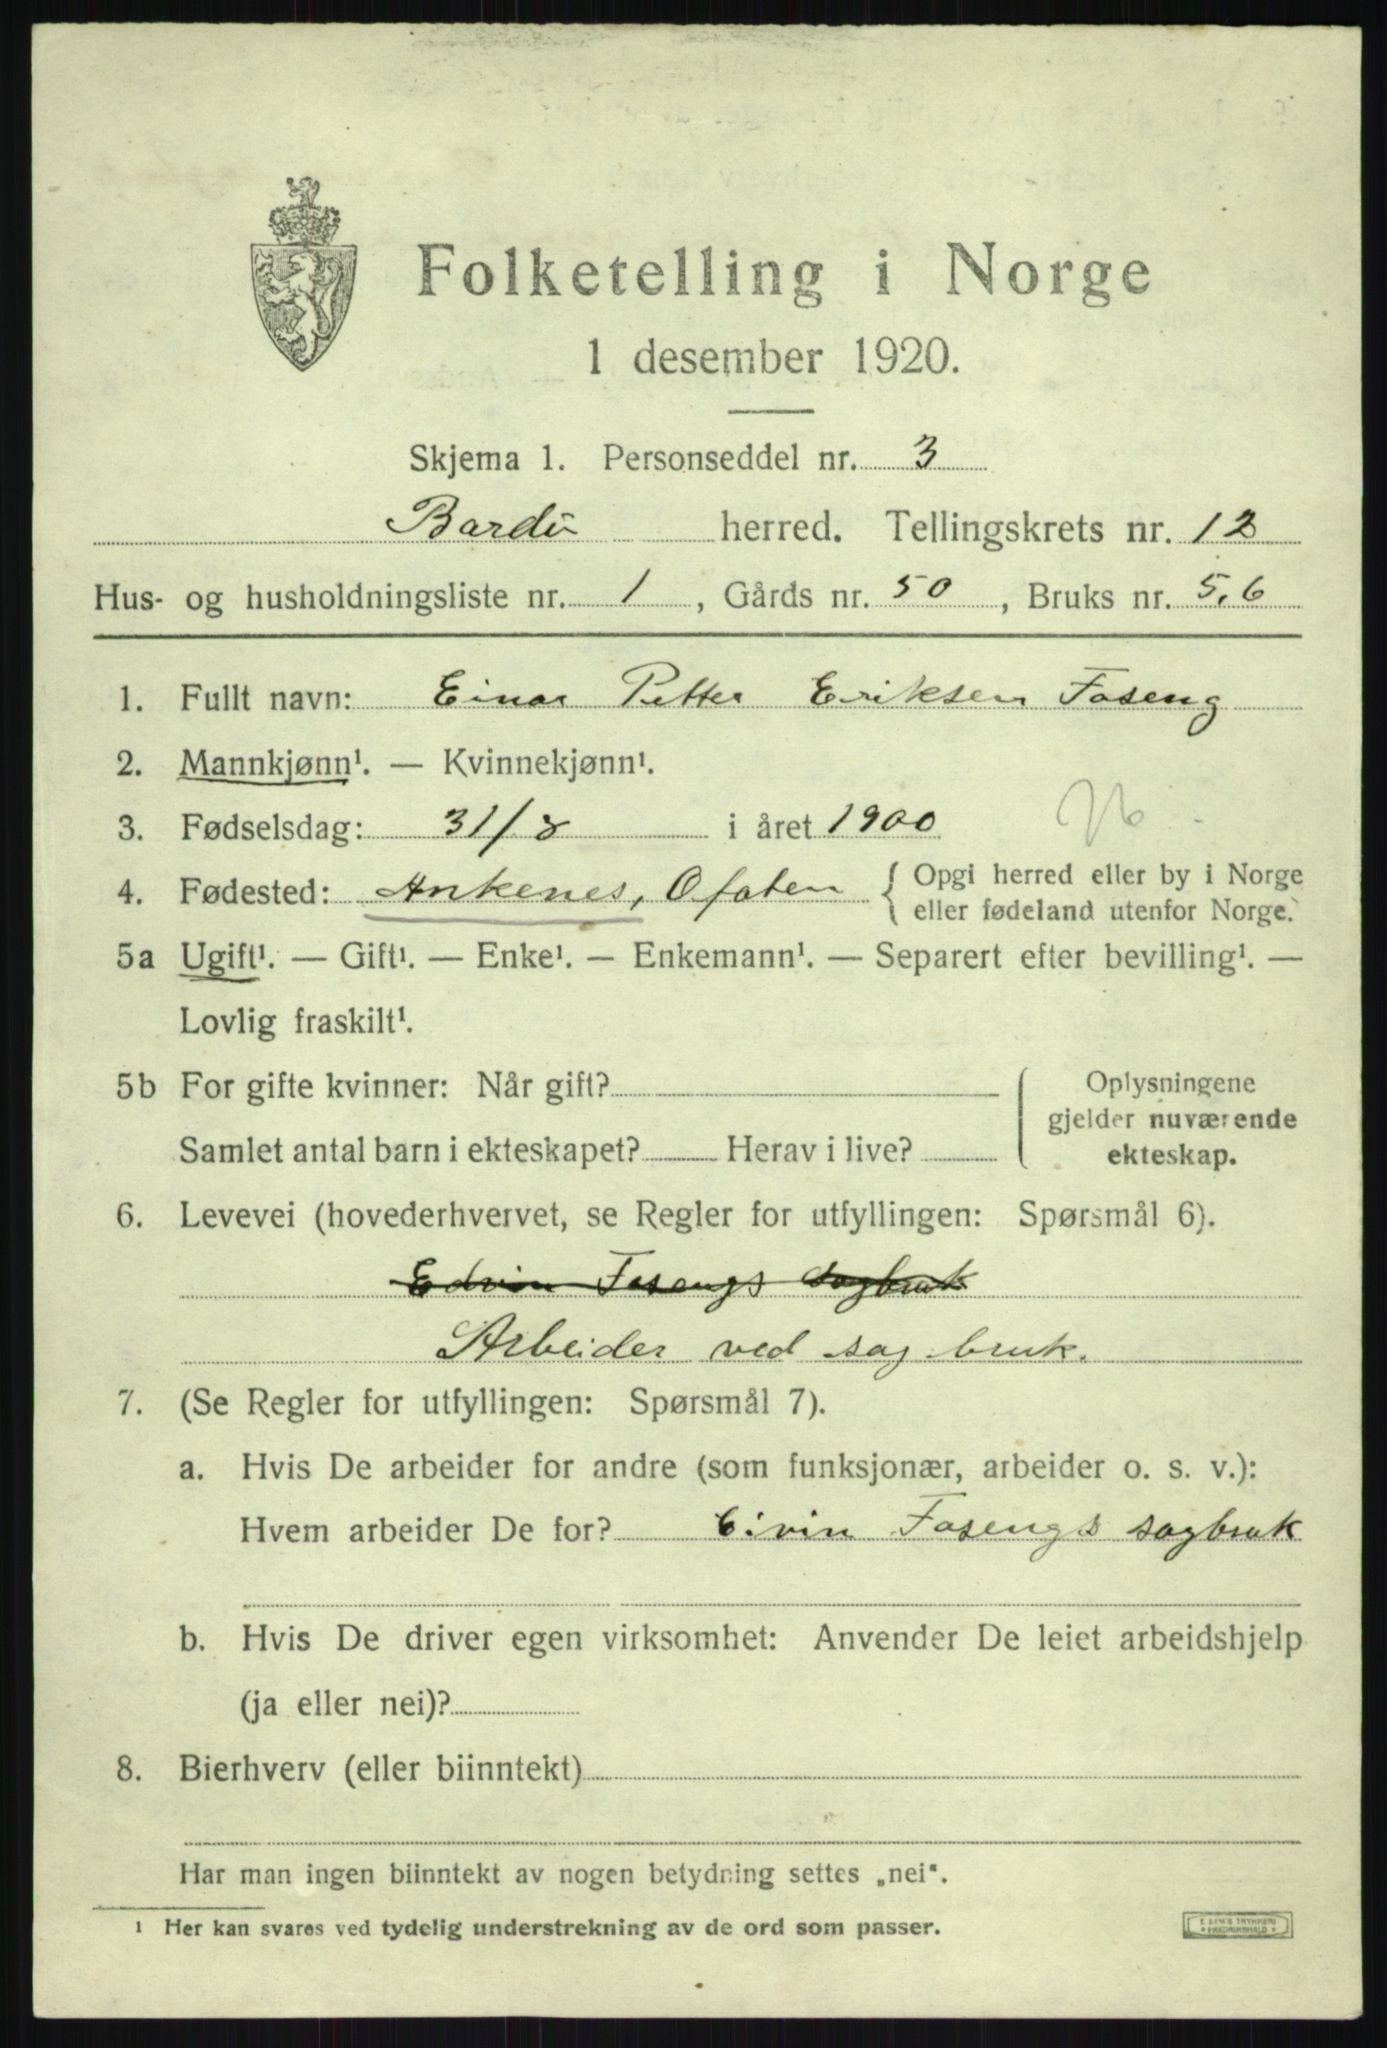 Folketelling i Norge
1 desember 1920.
Skjema 1. Personseddel nr. 3
Bardu herred. Tellingskrets nr. 12
Hus- og husholdningsliste nr. 1, Gårds nr. 50, Bruks nr. 5,6
1. Fullt navn: Einar Petter Eriksen Foseng
2. Mannkjønn¹. — Kvinnekjønn¹.
3. Fødselsdag: 31/8 i året 1900
4. Fødested: Ankenes, Ofoten { Opgi herred eller by i Norge
eller fødeland utenfor Norge.
5a Ugift¹. — Gift¹. — Enke¹. — Enkemann¹. — Separert efter bevilling¹. —
Lovlig fraskilt¹.
5b For gifte kvinner: Når gift?
Samlet antal barn i ekteskapet? Herav i live?
Oplysningene
gjelder nuværende
ekteskap.
6. Levevei (hovederhvervet, se Regler for utfyllingen: Spørsmål 6).
Edvin Fosengs sagbruk
Arbeider ved sag bruk.
7. (Se Regler for utfyllingen: Spørsmål 7).
a. Hvis De arbeider for andre (som funksjonær, arbeider o. s. v.):
Hvem arbeider De for? Eivin Fosengs sagbruk
b. Hvis De driver egen virksomhet: Anvender De leiet arbeidshjelp
(ja eller nei)?
8. Bierhverv (eller biinntekt)
Har man ingen biinntekt av nogen betydning settes „nei“.
¹ Her kan svares ved tydelig understrekning av de ord som passer.
E. SEMS TRYKKERI
FREDRIKSHALD